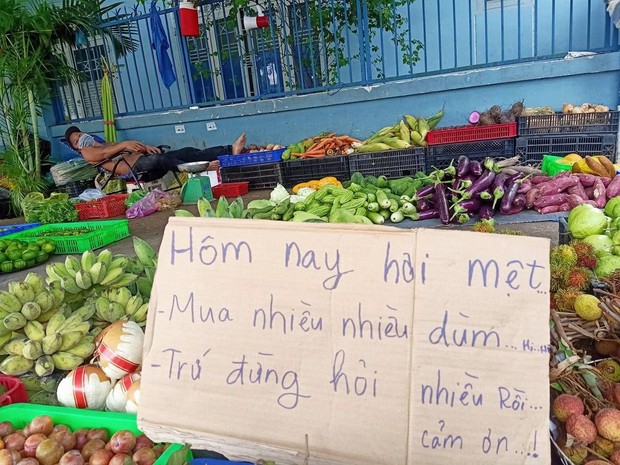 Hôm nay hơi mệt...
- Mua nhiều nhiều dùm... Hi...Hi
- Trứ đừng hỏi nhiều Rồi...
cảm ơn...!